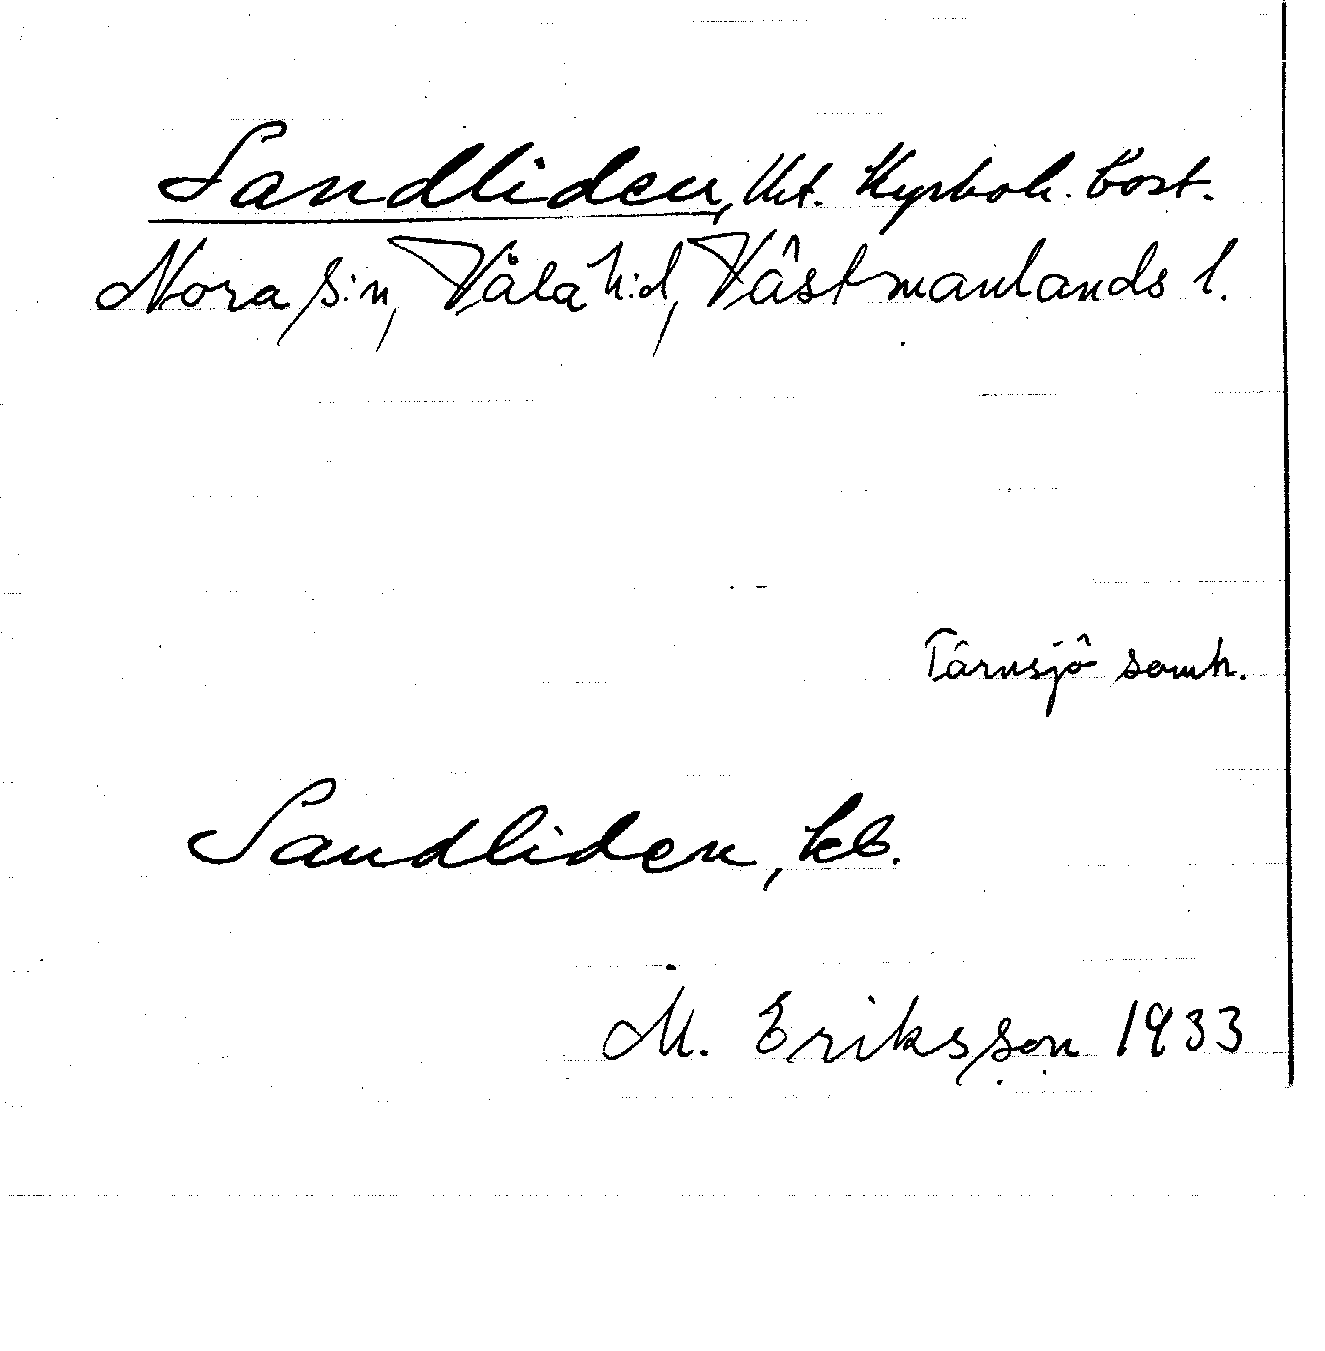 Sandliden, Ut. Kyrkoh. Bost.
Nora s:n, Våla h:d, Västmanlands l.
Tärnsjö samh.
Sandliden, kb.
M. Eriksson 1933